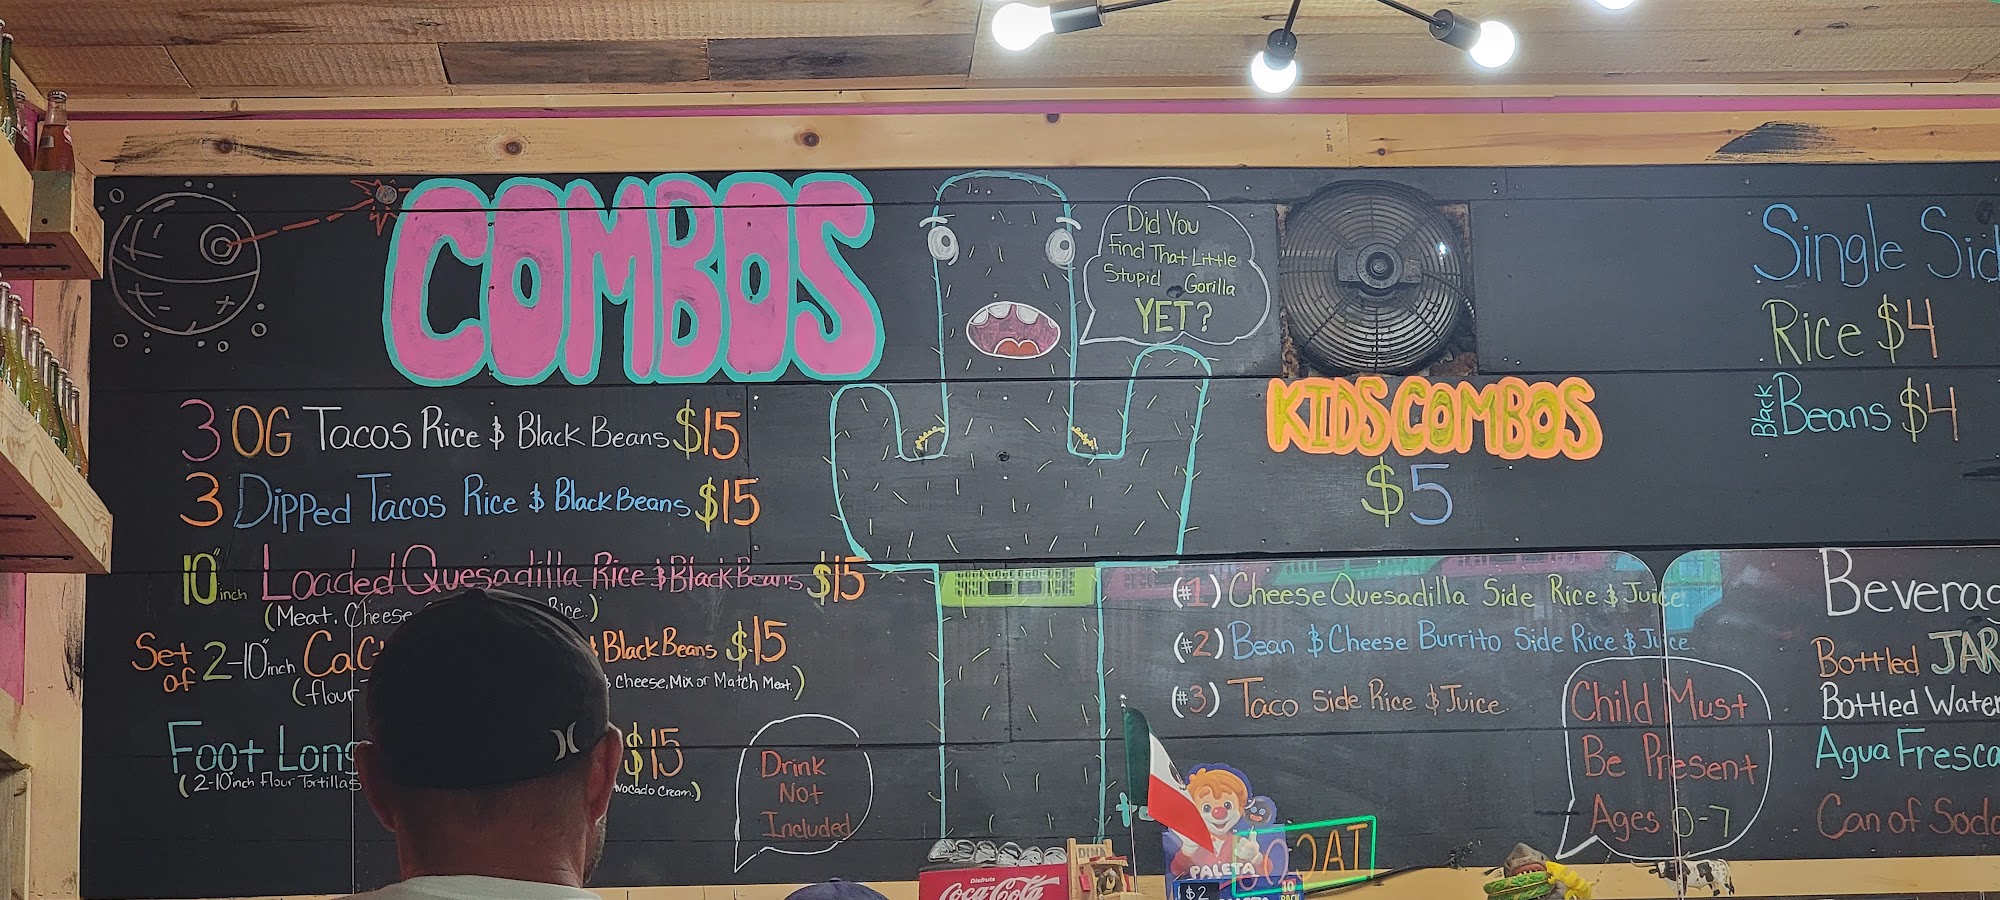 COMBOS
Did You
Find That Little
Stupid Gorilla
YET?
3 OG Tacos Rice & Black Beans $15
3 Dipped Tacos Rice & Black Beans $15
10" inch Loaded Quesadilla Rice & Black Beans $15
(Meat, Cheese Rice.)
Set of 2-10" inch Black Beans $15
(flour Cheese, Mix or Match Meat.)
Foot Long $15
(2-10 inch Flour Tortillas Avocado Cream.)
Drink
Not
Included
KIDS COMBOS
$5
(#1) Cheese Quesadilla Side Rice & Juice.
(#2) Bean & Cheese Burrito Side Rice & Juice.
(#3) Taco Side Rice & Juice.
Child Must
Be Present
Ages 0-7
Single Sid
Rice $4
Black Beans $4
Beverag
Bottled JAR
Bottled Water
Agua Fresca
Can of Soda
Disfruta
Coca-Cola
PALETA
$2